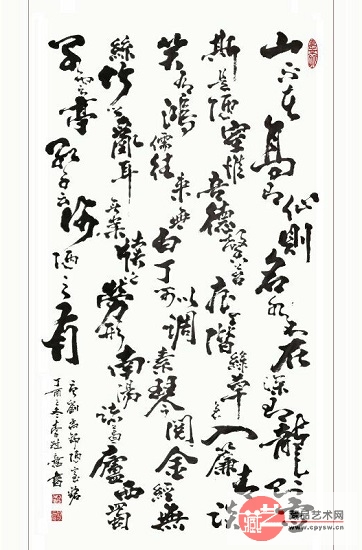 山不在高有仙則名水不在深有龍則靈
斯是陋室惟吾德馨苔痕上階綠草色入簾青談
笑有鴻儒往來無白丁可以調素琴閱金經無
絲竹之亂耳無案牘之勞形南陽諸葛廬西蜀
子雲亭孔子云何陋之有
劉禹錫陋室銘
丁酉之冬李書
藏
藏品艺术网
www.cpysw.cn